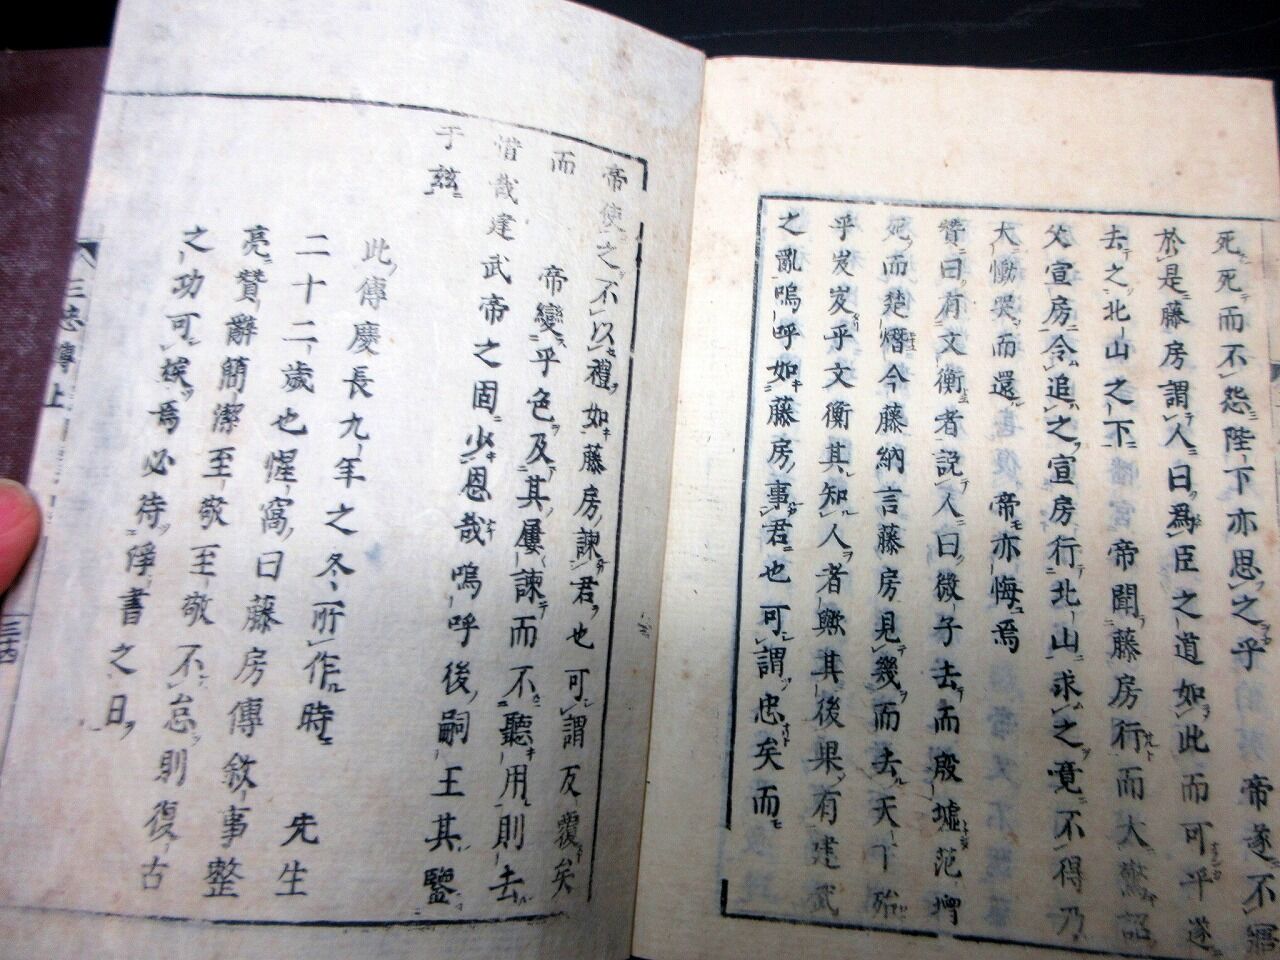 死死而不怨陛下亦思之乎　帝遂不寤
於是藤房謂人曰爲臣之道如此而可乎遂
去之北山之下　帝聞藤房行而大驚詔
父宣房令追之宣房行北山求之竟不得乃
大慟哭而還　帝亦悔焉
賛曰有文衡者說人曰微子去而殷墟范增
死而楚熸今藤納言藤房見幾而去天下殆
乎岌岌乎文衡其知人者歟其後果有建武
之亂嗚呼如藤房事君也可謂忠矣而
帝使之不以禮如藤房諫君也可謂反覆矣
而　帝變乎色及其屢諫而不聽用則去
惜哉建武帝之固少恩哉嗚呼後嗣王其鑒
于茲
此傳慶長九年之冬所作時　先生
二十二歲也惺窩曰藤房傳敘事整
亮贊辭簡潔至敬至敬不怠則復古
之功可竢焉必待淨書之日
三忠傳上
三十四